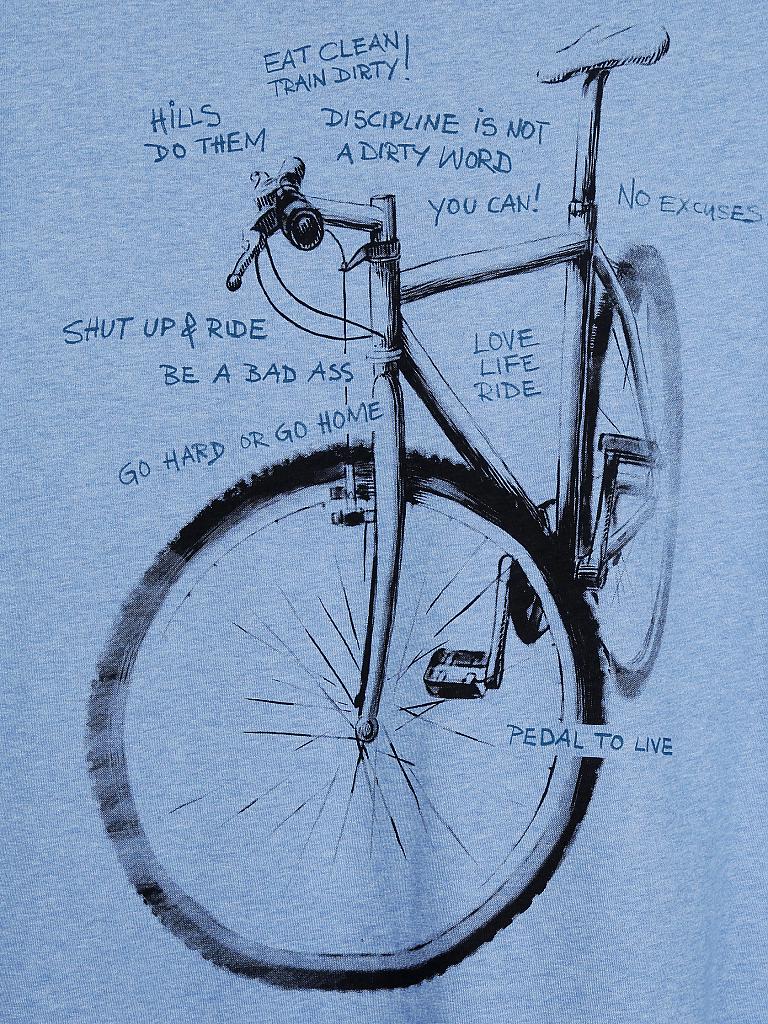 EAT CLEAN!
TRAIN DIRTY!
HiLLS
DO THEM
DISCIPLINE iS NOT
A DIRTY WORD
YOU CAN!
NO EXCUSES
SHUT UP & RIDE
BE A BAD ASS
LOVE
LIFE
RIDE
GO HARD OR GO HOME
PEDAL TO LIVE